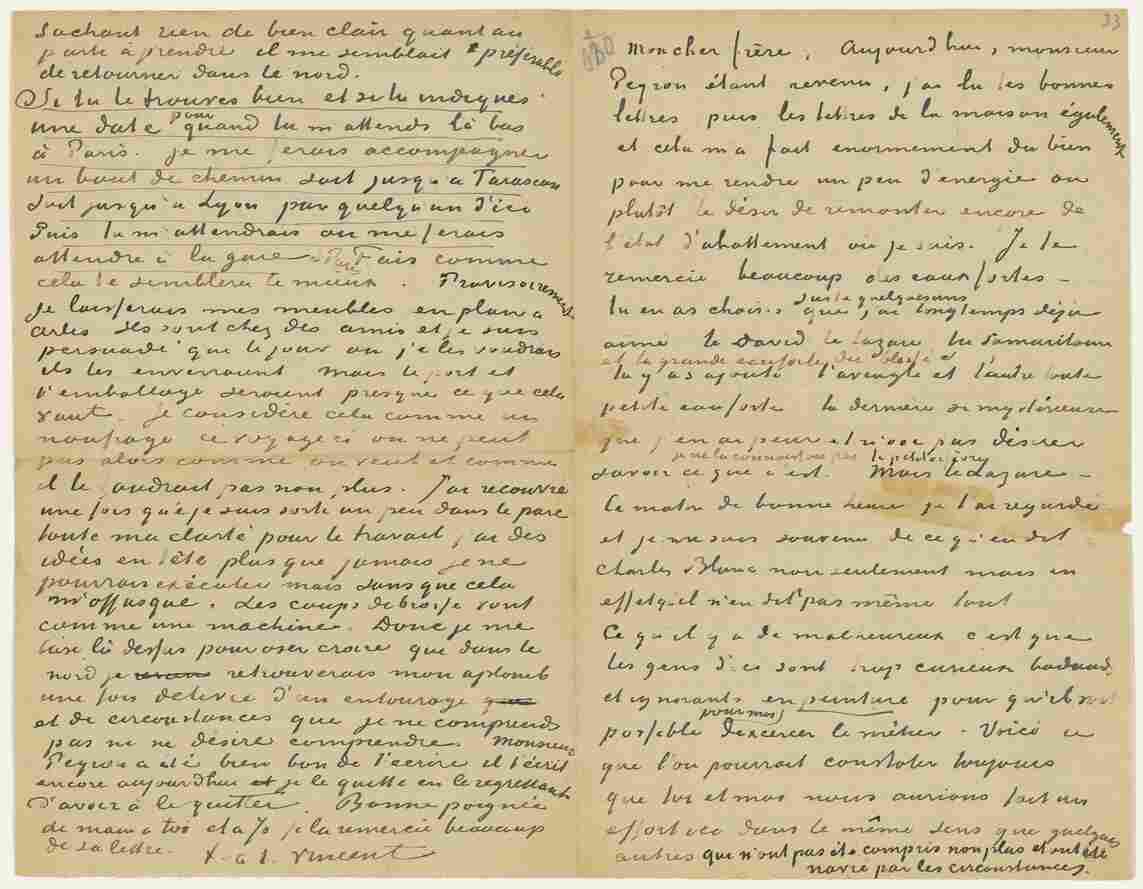 sachant rien de bien clair quant au
parti à prendre il me semblait préférable
de retourner dans le nord.
Si tu le trouves bien et si tu indiques
une date pour quand tu m'attends là bas
à Paris. je me ferais accompagner
un bout de chemin soit jusqu'à Tarascon
soit jusqu'à Lyon par quelqu'un d'ici
Puis tu m'attendrais ou me ferais
attendre à la gare à Paris Fais comme
cela te semblera le mieux. Provisoirement
je laisserais mes meubles en plan à
Arles Ils sont chez des amis et je suis
persuadé que le jour ou je les voudrais
ils les enverraient mais le port et
l'emballage seraient presque ce que cela
vaut. je considère cela comme un
naufrage ce voyage ci on ne peut
pas alors comme on veut et comme
il le faudrait pas non plus. J'ai recouvré
une fois que je suis sorti un peu dans le parc
toute ma clarté pour le travail j'ai des
idées en tête plus que jamais je ne
pourrais exécuter mais sans que cela
m'offusque. Les coups de brosse vont
comme une machine. Donc je me
base là dessus pour oser croire que dans le
nord je retrouverais mon aplomb
une fois délivré d'un entourage
et de circonstances que je ne comprends
pas ni ne désire comprendre. Monsieur
Peyron a été bien bon de t'ecrire il t'écrit
encore aujourdhui je le quitte en le regrettant
d'avoir à le quitter. Bonne poignée
de main à toi et à Jo je la remercie beaucoup
de sa lettre. t. à t. Vincent
33
Mon cher frère, Aujourd hui, monsieur
Peyron étant revenu, j'ai lu tes bonnes
lettres puis les lettres de la maison également
et cela m'a fait enormement du bien
pour me rendre un peu d'energie ou
plutôt le désir de remonter encore de
l'état d'abattement où je suis. Je te
remercie beaucoup des eaux fortes –
tu en as choisi juste quelques uns que j'ai longtemps déjà
aimé le David le Lazare la Samaritaine
et la grande eau forte du blessé et
tu y as ajouté l'aveugle et l'autre toute
petite eau forte la dernière si mystérieuse
que j'en ai peur et n'ose pas désirer
je ne la connaissais pas le petit orfevre
savoir ce que c'est. Mais le Lazare –
Ce matin de bonne heure je l'ai regardé
et je me suis souvenu de ce qu'en dit
Charles Blanc non seulement mais en
effet qu'il n'en dit pas même tout
Ce qu'il y a de malheureux c'est que
les gens d'ici sont trop curieux badauds
et ignorants en peinture pour qu'il soit
possible pour moi d'exercer le métier. Voici ce
que l'on pourrait constater toujours
que toi et moi nous aurions fait un
effort ici dans le même sens que quelques
autres que n'ont pas été compris non plus et ont été
navré par les circonstances.